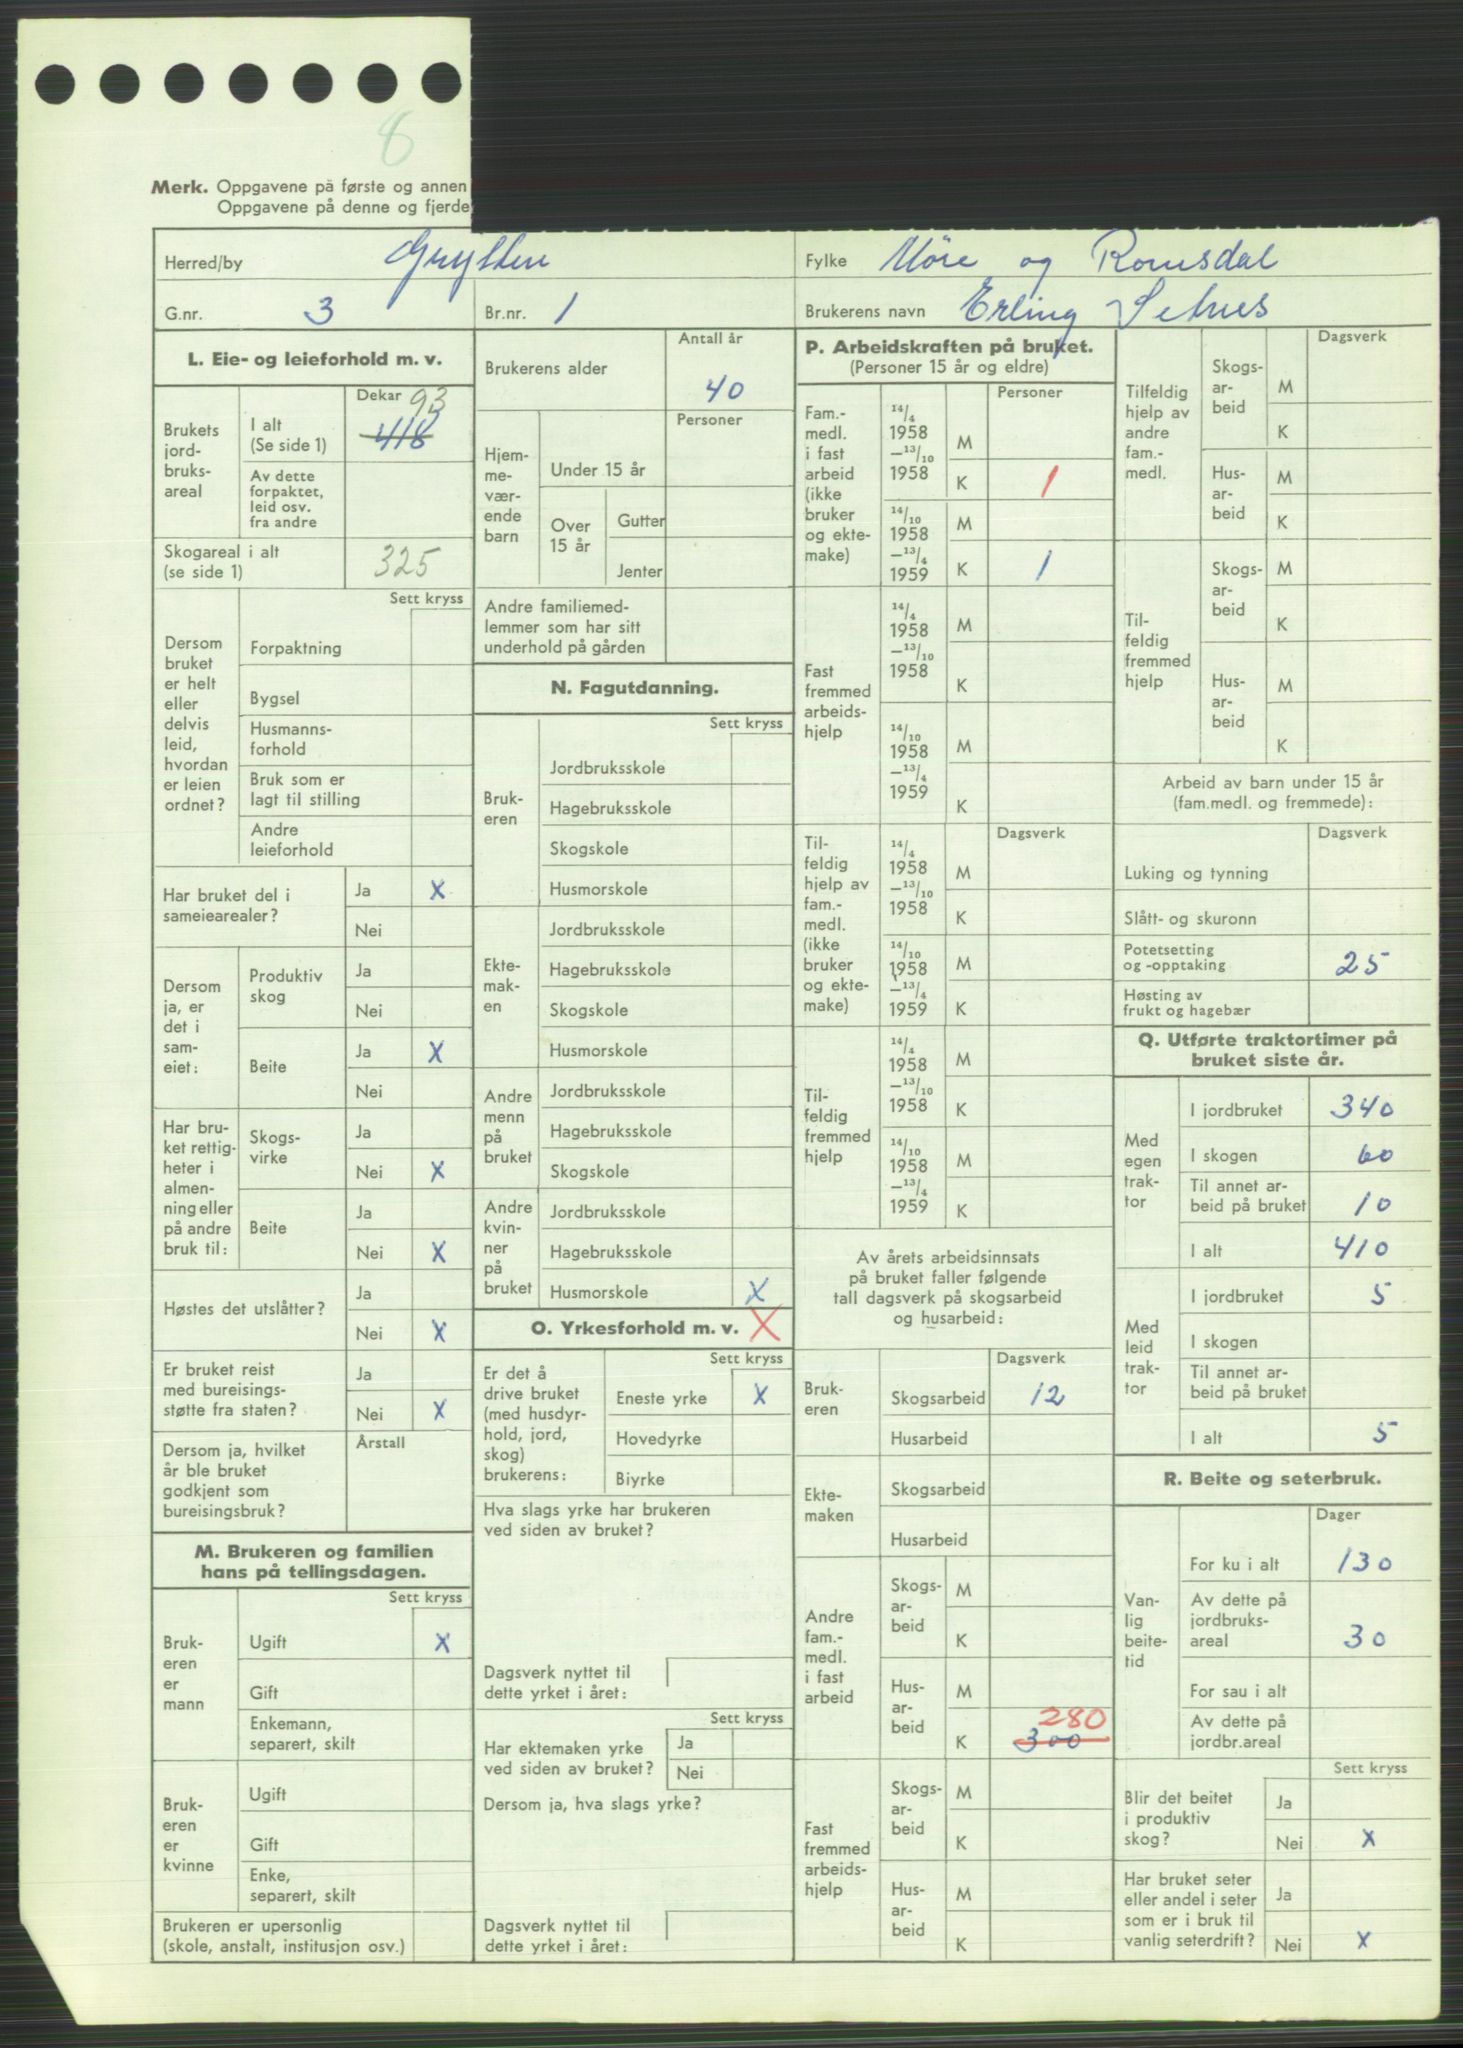 8
Merk. Oppgavene på første og annen
Oppgavene på denne og fjerde
Herred/by Grytten
Fylke Møre og Romsdal
G.nr. 3
Br.nr. 1
Brukerens navn Erling Setnes
L. Eie- og leieforhold m. v.
Dekar
Brukets jord-bruks-areal
I alt (Se side 1) 93 418
Av dette forpaktet, leid osv. fra andre
Skogareal i alt (se side 1) 325
Sett kryss
Dersom bruket er helt eller delvis leid, hvordan er leien ordnet?
Forpaktning
Bygsel
Husmanns-forhold
Bruk som er lagt til stilling
Andre leieforhold
Har bruket del i sameiearealer?
Ja X
Nei
Dersom ja, er det i sam-eiet:
Produktiv skog
Ja
Nei
Beite
Ja X
Nei
Har bru-ket rettig-heter i almen-ning eller på andre bruk til:
Skogs-virke
Ja
Nei X
Beite
Ja
Nei X
Høstes det utslåtter?
Ja
Nei X
Er bruket reist med bureisings-støtte fra staten?
Ja
Nei X
Dersom ja, hvilket år ble bruket godkjent som bureisingsbruk?
Årstall
M. Brukeren og familien hans på tellingsdagen.
Sett kryss
Bruk-eren er mann
Ugift X
Gift
Enkemann, separert, skilt
Bruk-eren er kvinne
Ugift
Gift
Enke, separert, skilt
Brukeren er upersonlig (skole, anstalt, institusjon osv.)
Antall år
Brukerens alder 40
Personer
Hjem-me-vær-ende barn
Under 15 år
Over 15 år
Gutter
Jenter
Andre familiemed-lemmer som har sitt underhold på gården
N. Fagutdanning.
Sett kryss
Bruk-eren
Jordbruksskole
Hagebruksskole
Skogskole
Husmorskole
Ekte-mak-en
Jordbruksskole
Hagebruksskole
Skogskole
Husmorskole
Andre menn på bruket
Jordbruksskole
Hagebruksskole
Skogskole
Andre kvin-ner på bruket
Jordbruksskole
Hagebruksskole
Husmorskole X
O. Yrkesforhold m. v. X
Sett kryss
Er det å drive bruket (med husdyr-hold, jord, skog) brukerens:
Eneste yrke X
Hovedyrke
Biyrke
Hva slags yrke har brukeren ved siden av bruket?
Dagsverk nyttet til dette yrket i året:
Sett kryss
Har ektemaken yrke ved siden av bruket?
Ja
Nei
Dersom ja, hva slags yrke?
Dagsverk nyttet til dette yrket i året:
P. Arbeidskraften på bruket.
(Personer 15 år og eldre)
Personer
Fam.-medl. i fast arbeid (ikke bruker og ekte-make)
14/4 1958 –13/10 1958
M
K 1
14/10 1958 –13/4 1959
M
K 1
Fast fremmed arbeids-hjelp
14/4 1958 –13/10 1958
M
K
14/10 1958 –13/4 1959
M
K
Dagsverk
Til-feldig hjelp av fam.-medl. (ikke bruker og ekte-make)
14/4 1958 –13/10 1958
M
K
14/10 1958 –13/4 1959
M
K
Til-feldig fremmed hjelp
14/4 1958 –13/10 1958
M
K
14/10 1958 –13/4 1959
M
K
Av årets arbeidsinnsats på bruket faller følgende tall dagsverk på skogsarbeid og husarbeid:
Dagsverk
Bruk-eren
Skogsarbeid 12
Husarbeid
Ekte-maken
Skogsarbeid
Husarbeid
Andre fam.-medl. i fast arbeid
Skogs-ar-beid
M
K
Hus-ar-beid
M
K 280 300
Fast fremmed arbeids-hjelp
Skogs-ar-beid
M
K
Hus-ar-beid
M
K
Dagsverk
Tilfeldig hjelp av andre fam.-medl.
Skogs-ar-beid
M
K
Hus-ar-beid
M
K
Til-feldig fremmed hjelp
Skogs-ar-beid
M
K
Hus-ar-beid
M
K
Arbeid av barn under 15 år (fam.medl. og fremmede):
Dagsverk
Luking og tynning
Slått- og skuronn
Potetsetting og -opptaking 25
Høsting av frukt og hagebær
Q. Utførte traktortimer på bruket siste år.
Med egen trak-tor
I jordbruket 340
I skogen 60
Til annet ar-beid på bruket 10
I alt 410
Med leid trak-tor
I jordbruket 5
I skogen
Til annet ar-beid på bruket
I alt 5
R. Beite og seterbruk.
Dager
Van-lig beite-tid
For ku i alt 130
Av dette på jordbruks-areal 30
For sau i alt
Av dette på jordbr.areal
Sett kryss
Blir det beitet i produktiv skog?
Ja
Nei X
Har bruket seter eller andel i seter som er i bruk til vanlig seterdrift?
Ja
Nei X